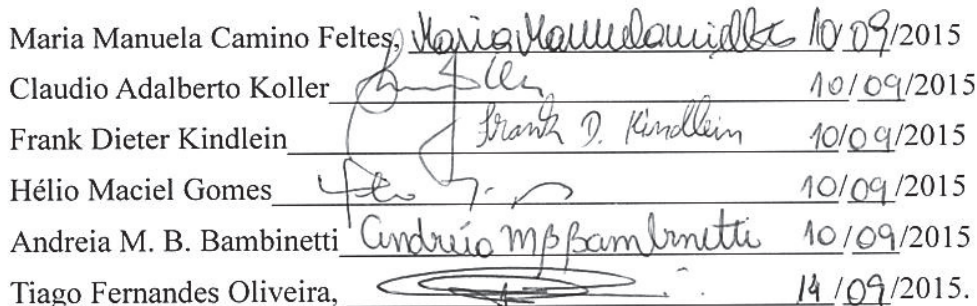 Maria Manuela Camino Feltes, 10/09/2015
Claudio Adalberto Koller 10/09/2015
Frank Dieter Kindlein Frank D. Kindlein 10/09/2015
Hélio Maciel Gomes 10/09/2015
Andreia M. B. Bambinetti Andreia MBBambinetti 10/09/2015
Tiago Fernandes Oliveira, 14/09/2015.